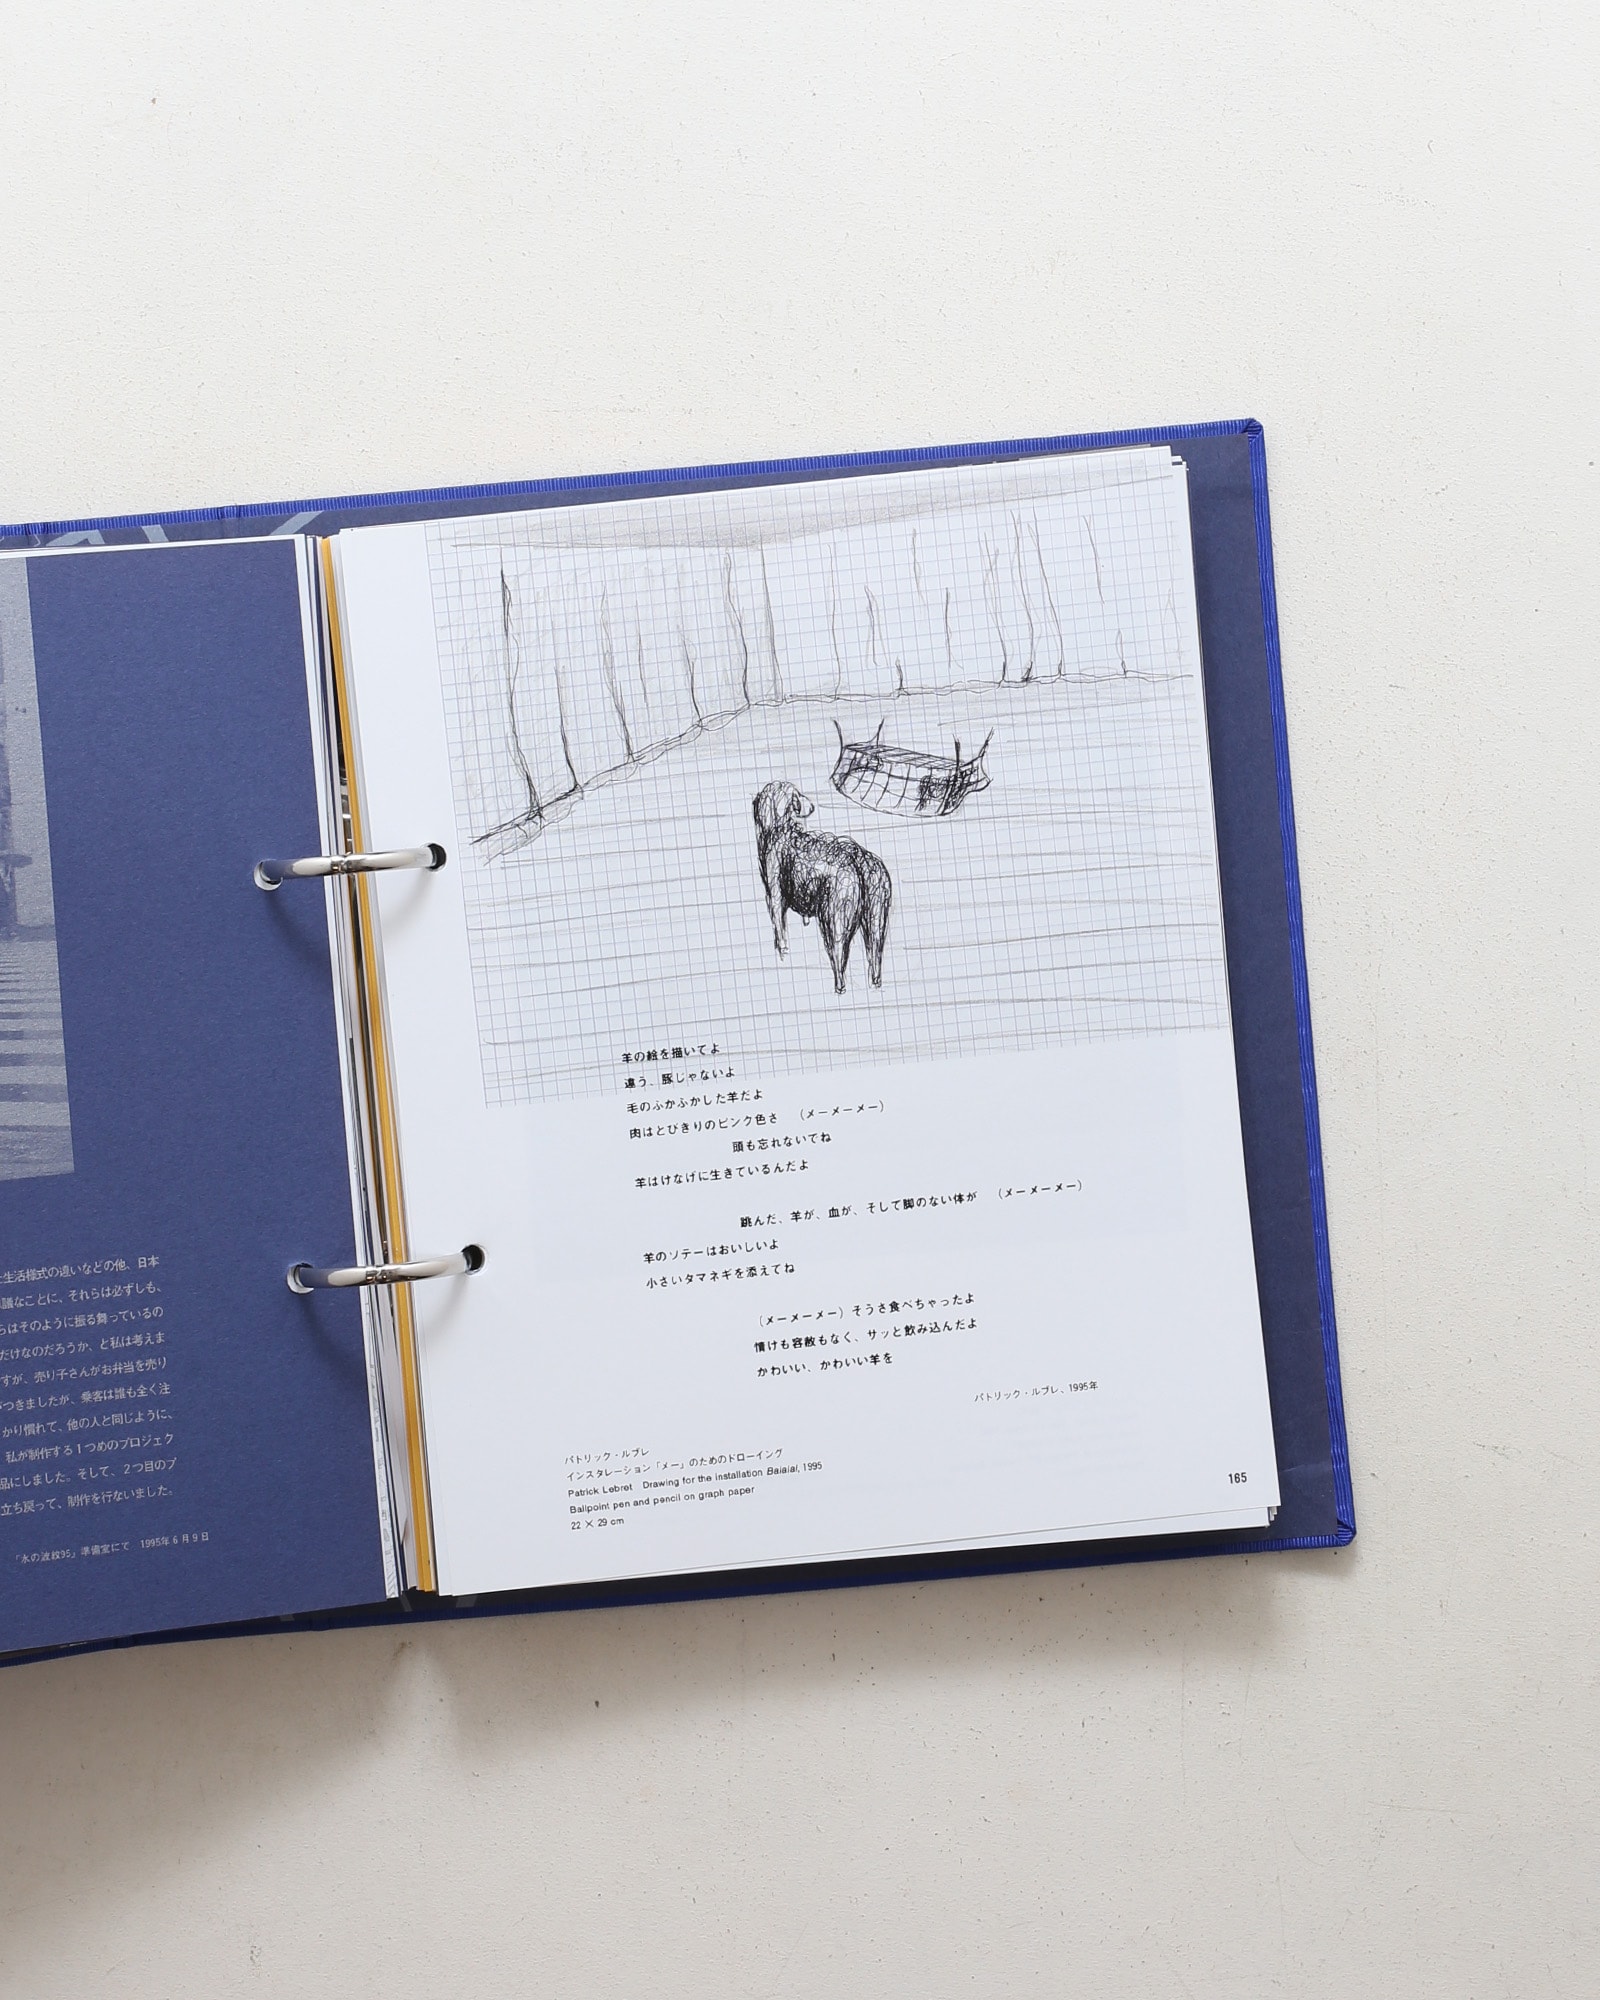 生活様式の違いなどの他、日本
議なことに、それらは必ずしも、
らはそのように振る舞っているの
だけなのだろうか、と私は考えま
すが、売り子さんがお弁当を売り
つきましたが、乗客は誰も全く注
かり慣れて、他の人と同じように、
私が制作する1つめのプロジェク
品にしました。そして、2つ目のプ
立ち戻って、制作を行ないました。
「水の波紋95」準備室にて 1995年6月9日
羊の絵を描いてよ
違う、豚じゃないよ
毛のふかふかした羊だよ
肉はとびきりのピンク色さ （メーメーメー）
頭も忘れないでね
羊はけなげに生きているんだよ
跳んだ、羊が、血が、そして脚のない体が （メーメーメー）
羊のソテーはおいしいよ
小さいタマネギを添えてね
（メーメーメー）そうさ食べちゃったよ
情けも容赦もなく、サッと飲み込んだよ
かわいい、かわいい羊を
パトリック・ルブレ、1995年
パトリック・ルブレ
インスタレーション「メー」のためのドローイング
Patrick Lebret Drawing for the installation Baiaiai, 1995
Ballpoint pen and pencil on graph paper
22 × 29 cm
165